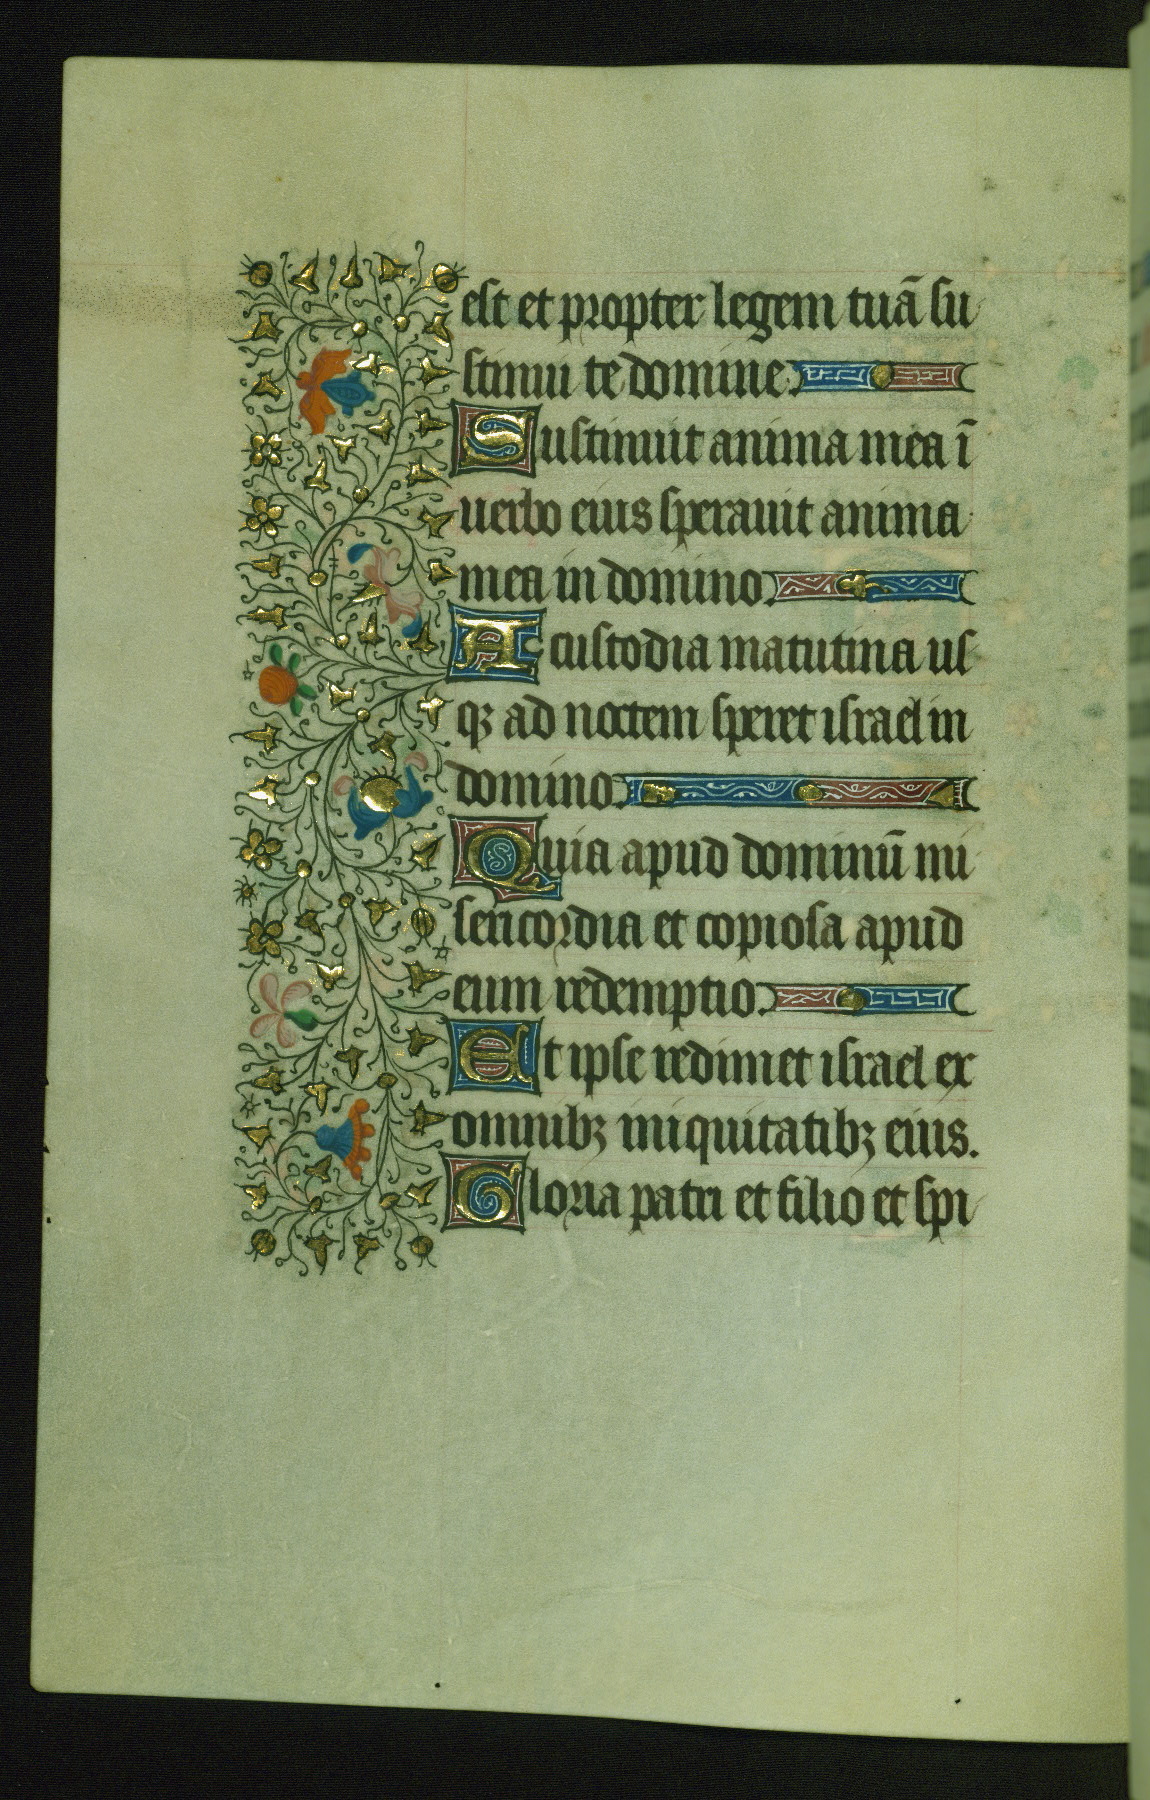 est et propter legem tuā su
stinui te domine.
Sustinuit anima mea ī
uerbo eius sperauit anima
mea in domino.
A custodia matutina us
qꝫ ad noctem speret israel in
domino.
Quia apud dominū mi
sericordia et copiosa apud
eum redemptio.
Et ipse redimet israel ex
omnibꝫ iniquitatibꝫ eius.
Gloria patri et filio et spi